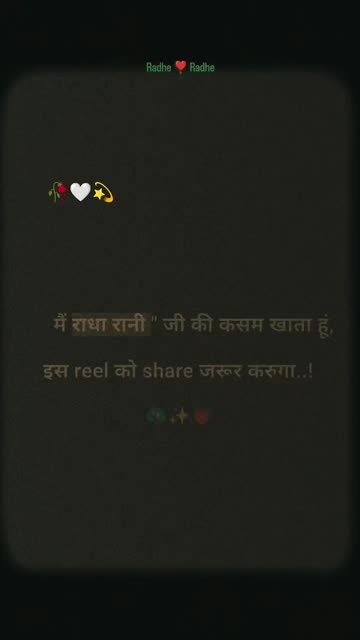 Radhe ❣️ Radhe
🥀🤍💫
मैं राधा रानी " जी की कसम खाता हूं,
इस reel को share जरूर करुगा..!